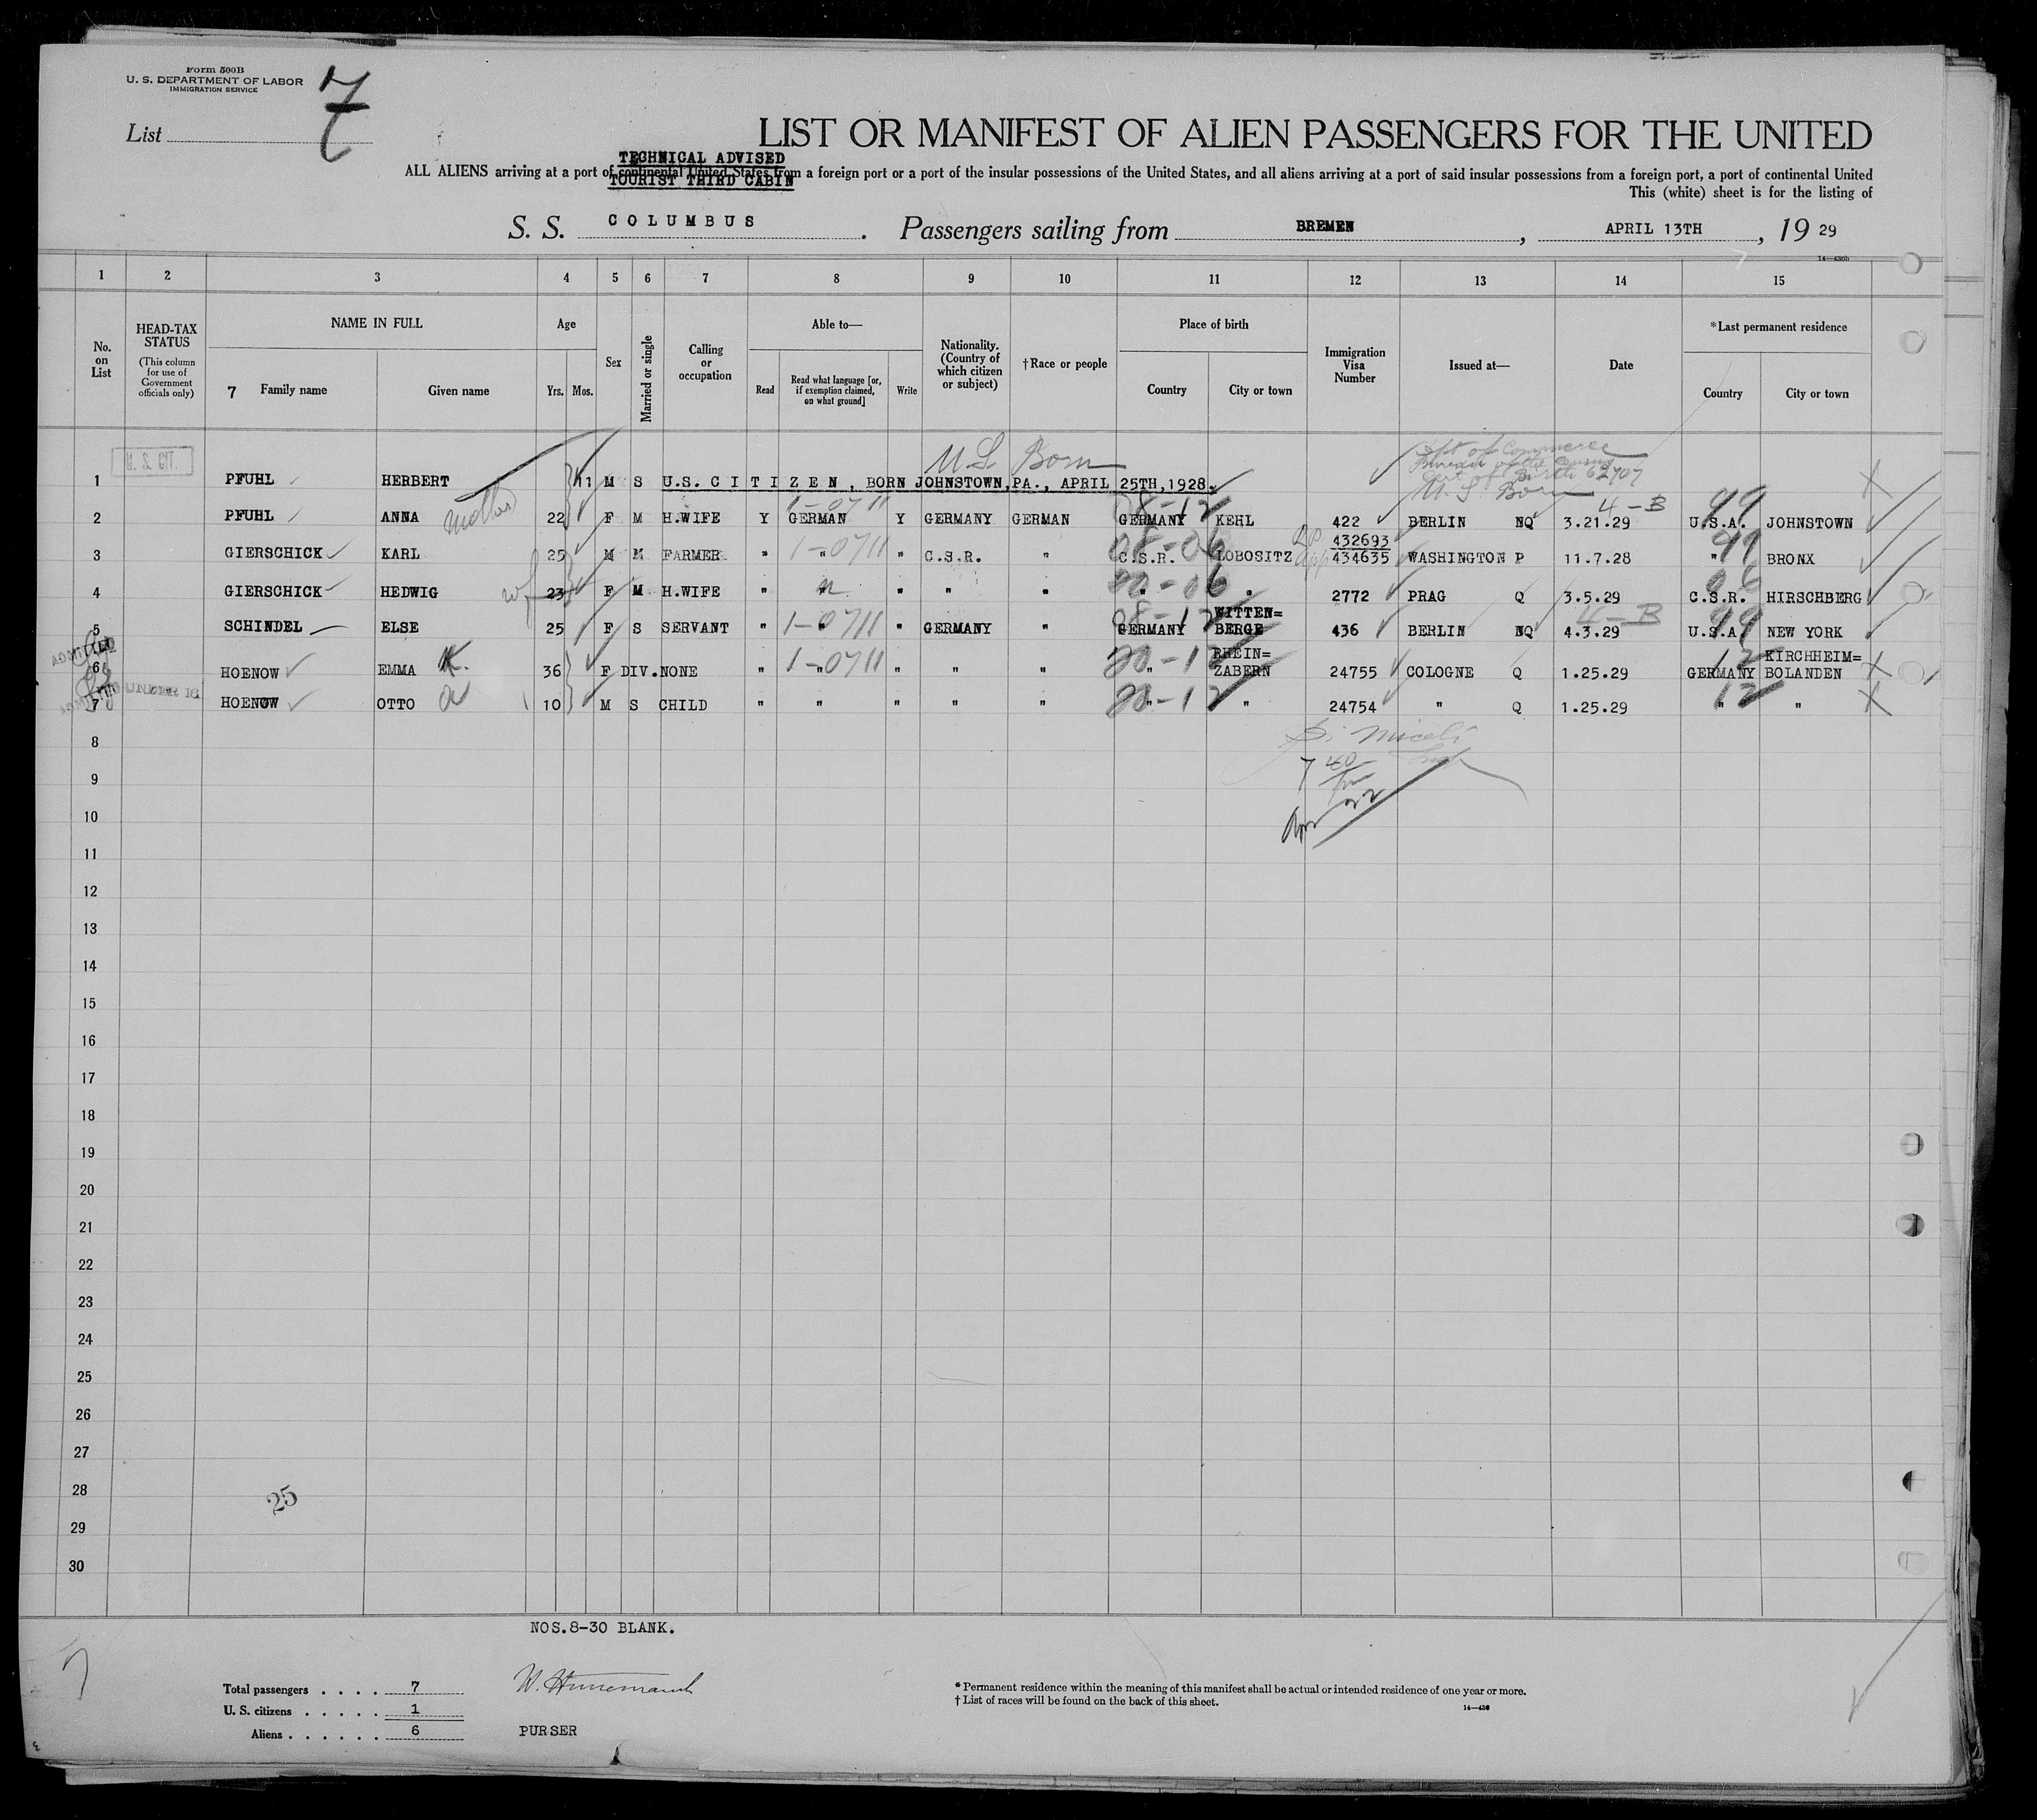 Form 500B
U. S. DEPARTMENT OF LABOR
IMMIGRATION SERVICE
7
List
LIST OR MANIFEST OF ALIEN PASSENGERS FOR THE UNITED
TECHNICAL ADVISED
TOURIST THIRD CABIN
ALL ALIENS arriving at a port of continental United States from a foreign port or a port of the insular possessions of the United States, and all aliens arriving at a port of said insular possessions from a foreign port, a port of continental United
This (white) sheet is for the listing of
S. S. COLUMBUS. Passengers sailing from BREMEN, APRIL 13TH, 19 29
14—430b
1 2 3 4 5 6 7 8 9 10 11 12 13 14 15
No. on List
HEAD-TAX STATUS (This column for use of Government officials only)
NAME IN FULL
7 Family name Given name
Age Yrs. Mos.
Sex
Married or single
Calling or occupation
Able to— Read Read what language [or, if exemption claimed, on what ground] Write
Nationality. (Country of which citizen or subject)
†Race or people
Place of birth Country City or town
Immigration Visa Number
Issued at—
Date
*Last permanent residence Country City or town
U. S. Born
Dpt of Commerce
Bureau of the Census
Cert of Birth 62707
U. S. Born
U. S. CIT.
1 PFUHL HERBERT 11 M S U.S. CITIZEN, BORN JOHNSTOWN, PA., APRIL 25TH, 1928.
1-0711 08-12 4-B 99
2 PFUHL ANNA mother 22 F M H.WIFE Y GERMAN Y GERMANY GERMAN GERMANY KEHL 422 BERLIN NQ 3.21.29 U.S.A. JOHNSTOWN
432693
3 GIERSCHICK KARL 25 M M FARMER " 1-0711 " " C.S.R. " 08-06 C.S.R. LOBOSITZ 434635 WASHINGTON P 11.7.28 99 " BRONX
4 GIERSCHICK HEDWIG wf 23 F M H.WIFE " " " " " 20-06 " " 2772 PRAG Q 3.5.29 06 C.S.R. HIRSCHBERG
5 SCHINDEL ELSE 25 F S SERVANT " 1-0711 " " GERMANY " 08-12 GERMANY WITTEN=BERGE 436 BERLIN NQ 4-B 4.3.29 99 U.S.A. NEW YORK
6 HOENOW EMMA K. 36 F DIV. NONE " 1-0711 " " " " 20-12 " RHEIN=ZABERN 24755 COLOGNE Q 1.25.29 12 GERMANY KIRCHHEIM=BOLANDEN
UNDER 16
7 HOENOW OTTO a 10 M S CHILD " " " " " 20-12 " " 24754 " Q 1.25.29 12 " "
8
9
10
11
12
13
14
15
16
17
18
19
20
21
22
23
24
25
26
27
28
29
30
25
NOS.8-30 BLANK.
7
Total passengers . . . . 7
U. S. citizens . . . . . 1
Aliens . . . . . . 6
PURSER
* Permanent residence within the meaning of this manifest shall be actual or intended residence of one year or more.
† List of races will be found on the back of this sheet.
14—430